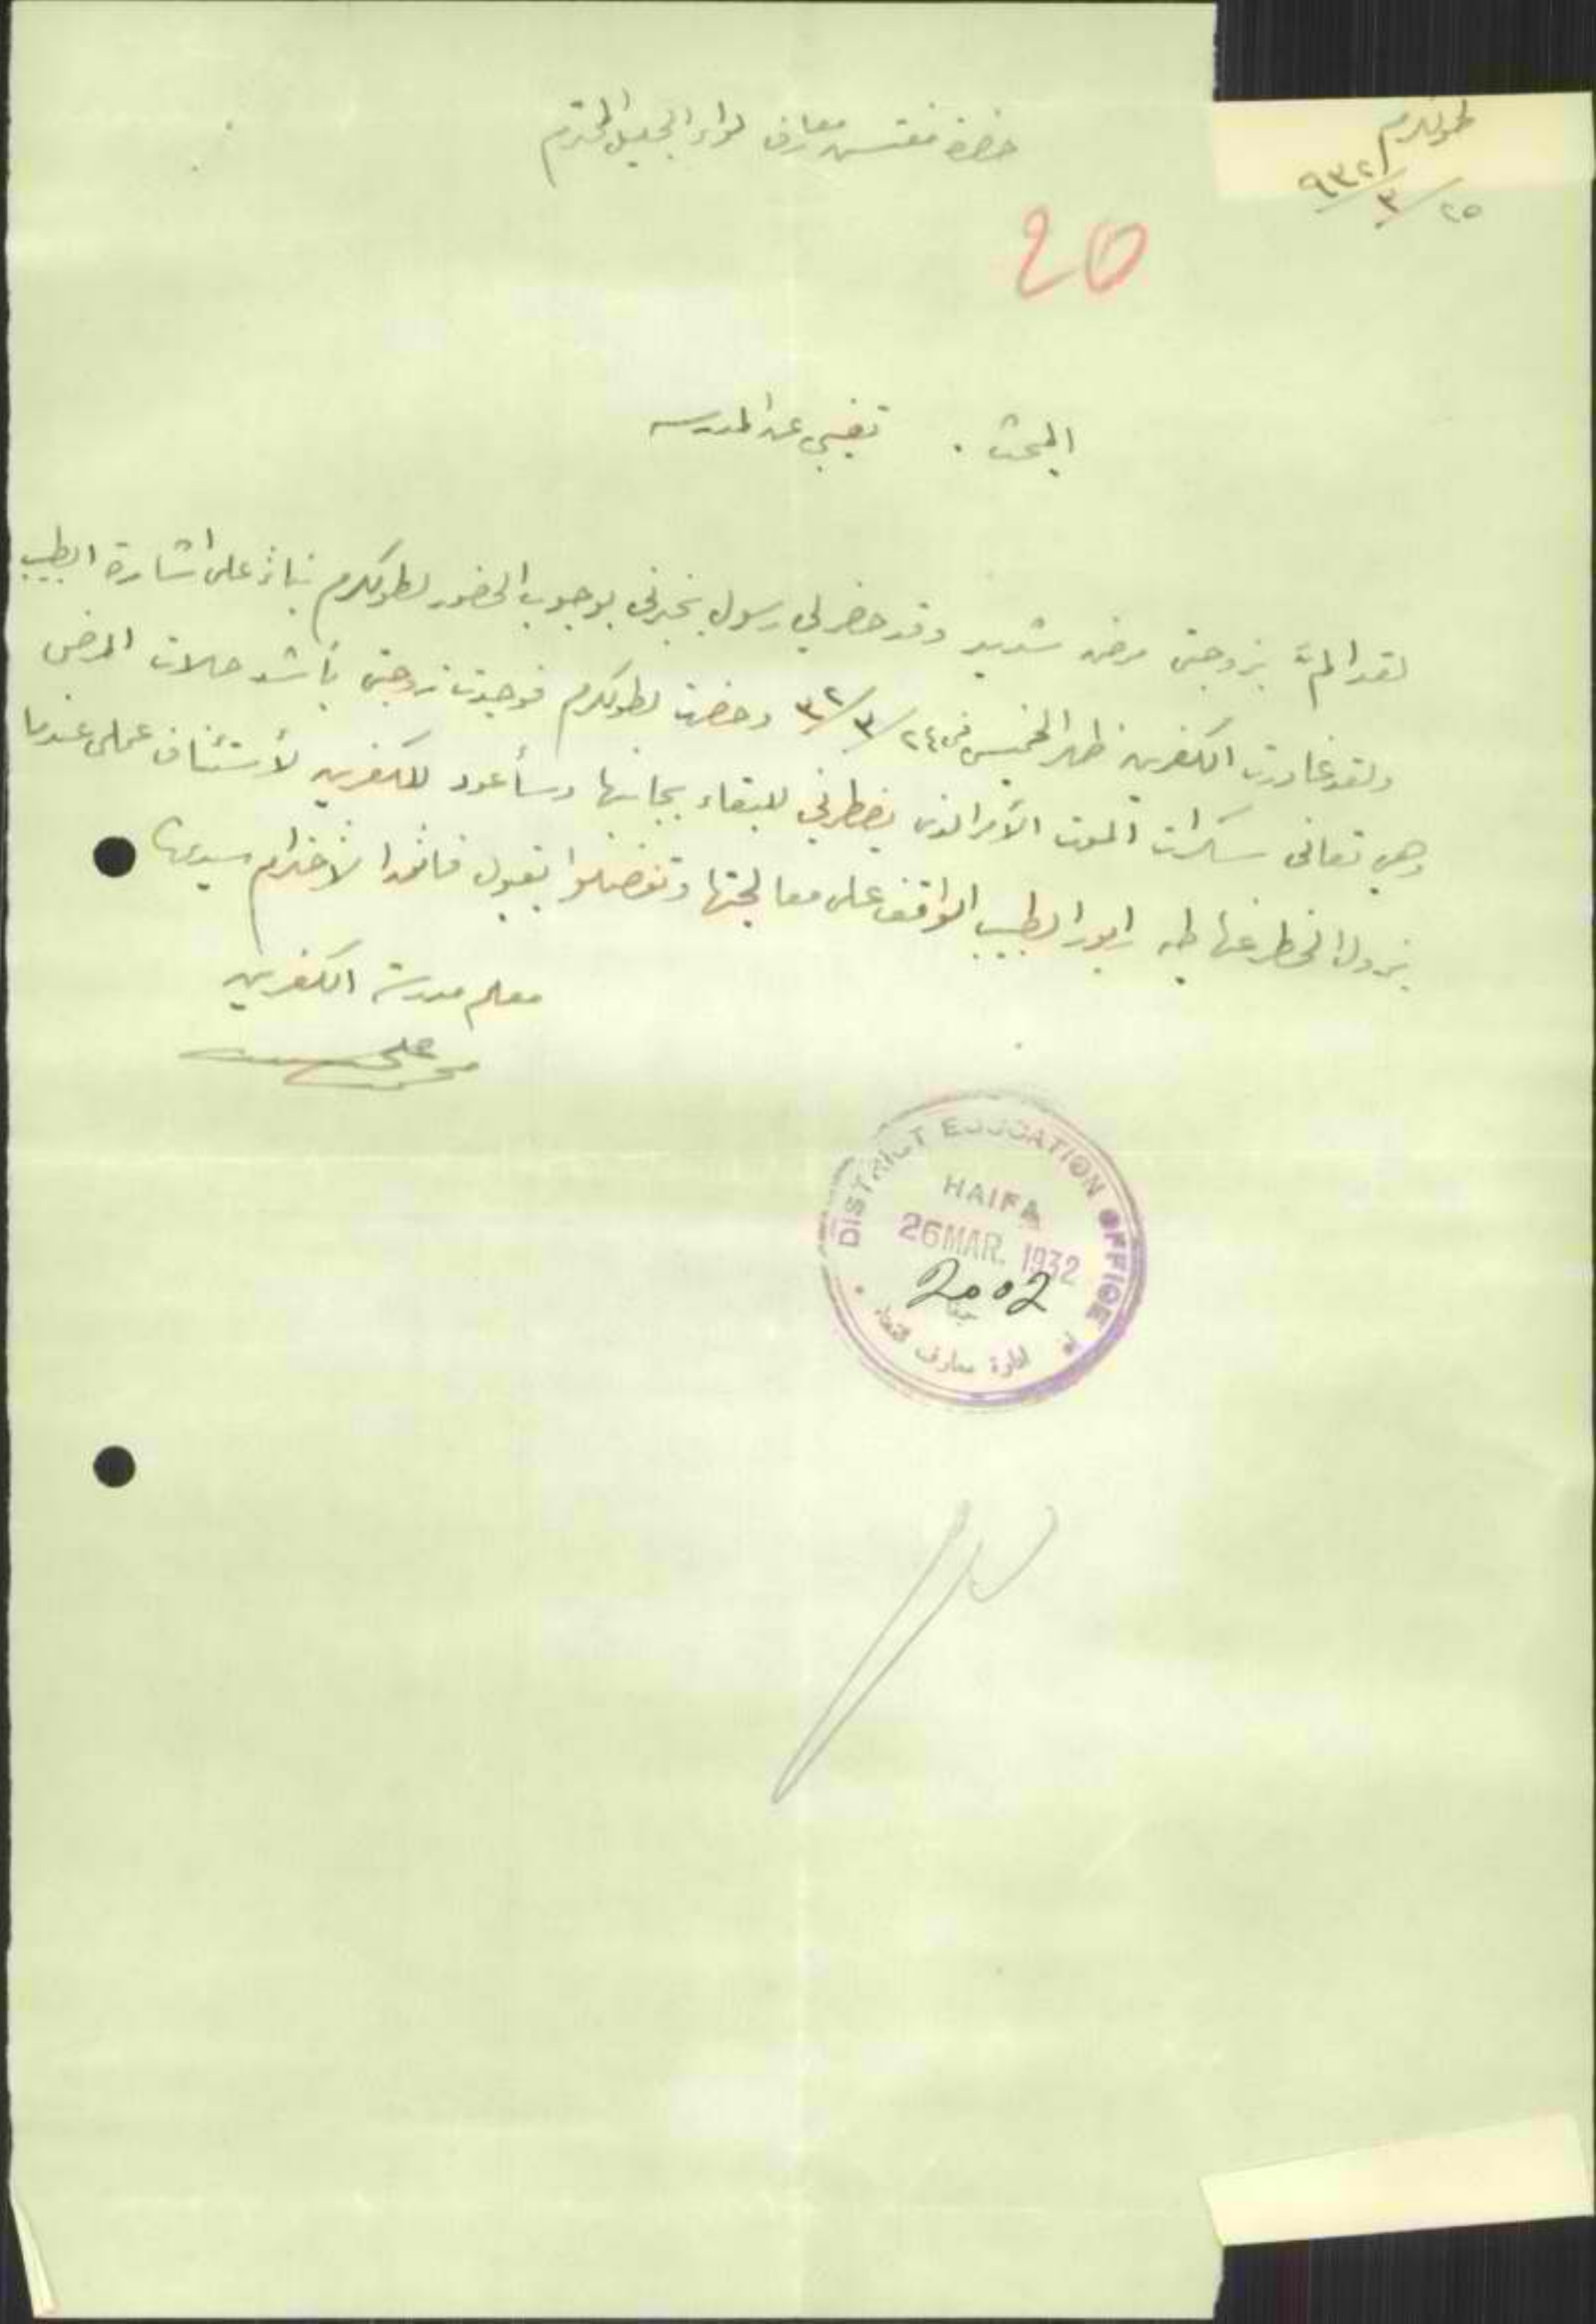 طولكرم
٢٥/٣/٩٣٢
حضرة مفتش معارف لواء الجليل المحترم
20
المبحث . تغيبي عن المدرسه
لقد المّ بزوجتي مرض شديد وقد حضر لي رسول يخبرني بوجوب الحضور لطولكرم بناءً على اشارة الطبيب
ولقد غادرت الكفرين ظهر الخميس في ٢٤/٣/٣٢ وحضرت لطولكرم فوجدت زوجتي بأشد حلات المرض
وهي تعاني سكرات الموت الأمر الذي يضطرني للبقاء بجانبها وسأعود للكفرين لأستئناف عملي عندما
يزول الخطر عنها طيه رابور الطبيب الواقف على معالجتها وتفضلوا بقبول فائق الاحترام سيدي
معلم مدرسة الكفرين
محمد علي
DISTRICT EDUCATION OFFICE
HAIFA
26 MAR. 1932
2002
حيفا
ادارة معارف القضاء